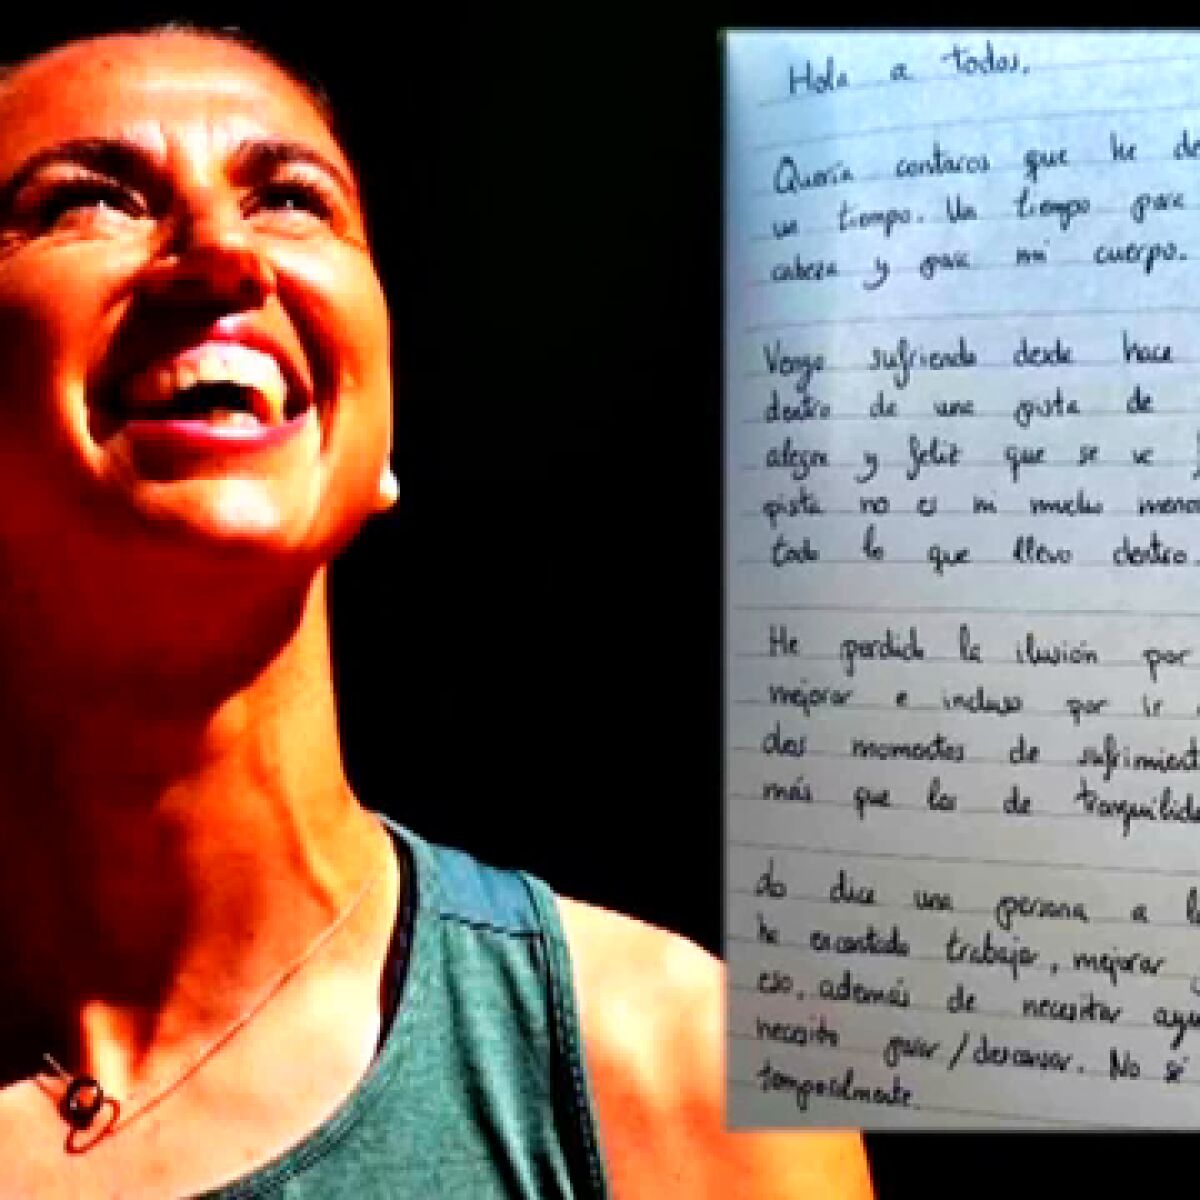 Hola a todos.
Quería contaros que he de
un tiempo. Un tiempo para
cabeza y para mi cuerpo.
Vengo sufriendo desde hace
dentro de una pista de
alegre y feliz que se ve
pista no es ni mucho menos
todo lo que llevo dentro.
He perdido la ilusión por
mejorar e incluso por ir
dos momentos de sufrimient
más que los de tranquilida
do dice una persona a l
he encantado trabajar, mejorar
eso, además de necesitar ayu
necesito parar/descansar. No sé
temporalmente.